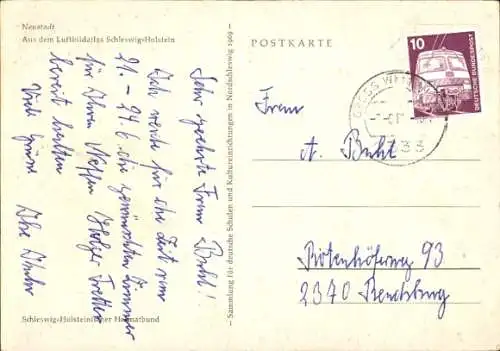 Neustadt
Aus dem Luftbildatlas Schleswig-Holstein
Sehr geehrte Frau Buhl!
Ich werde für die Zeit vom
21. - 24.6. die gewünschten Zimmer
für Ihren Neffen Holger
bereit halten
Viele Grüsse
Ihre
Schleswig-Holsteinischer Heimatbund
– Sammlung für deutsche Schulen und Kultureinrichtungen in Nordschleswig 1969 –
POSTKARTE
10
DEUTSCHE BUNDESPOST
Frau
A. Buhl
Rotenhöferweg 93
2370 Rendsburg